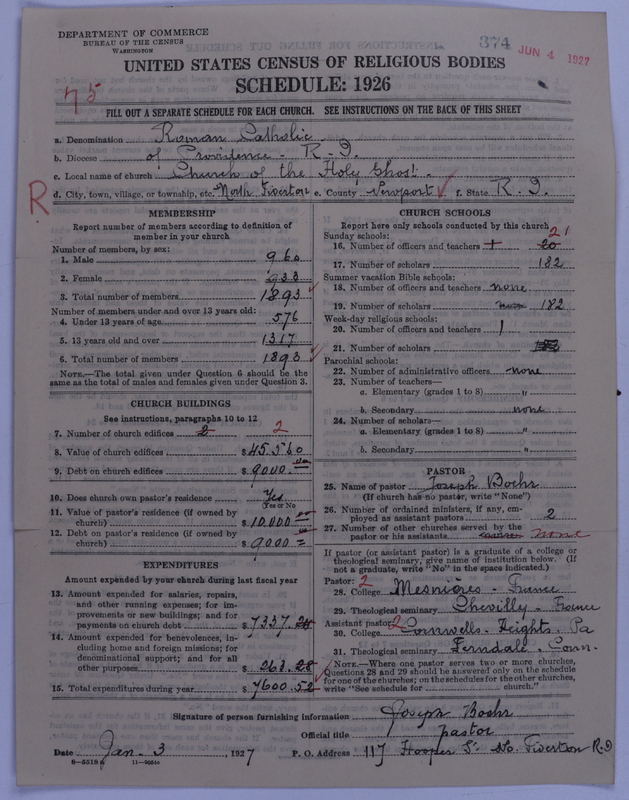 DEPARTMENT OF COMMERCE
BUREAU OF THE CENSUS
WASHINGTON
374
JUN 4 1927
UNITED STATES CENSUS OF RELIGIOUS BODIES
SCHEDULE: 1926
75
FILL OUT A SEPARATE SCHEDULE FOR EACH CHURCH. SEE INSTRUCTIONS ON THE BACK OF THIS SHEET
a. Denomination Roman Catholic
b. Diocese of Providence - R. I.
c. Local name of church Church of the Holy Ghost.
R
d. City, town, village, or township, etc. North Tiverton e. County Newport f. State R. I.
MEMBERSHIP
Report number of members according to definition of member in your church
Number of members, by sex:
1. Male 960
2. Female 933
3. Total number of members 1893
Number of members under and over 13 years old:
4. Under 13 years of age 576
5. 13 years old and over 1317
6. Total number of members 1893
NOTE.—The total given under Question 6 should be the
same as the total of males and females given under Question 3.
CHURCH BUILDINGS
See instructions, paragraphs 10 to 12
7. Number of church edifices 2 2
8. Value of church edifices $ 45.560
9. Debt on church edifices $ 9000.00
10. Does church own pastor's residence Yes
(Yes or No)
11. Value of pastor's residence (if owned by
church) $ 10,000 00
12. Debt on pastor's residence (if owned by
church) $ 9000
EXPENDITURES
Amount expended by your church during last fiscal year
13. Amount expended for salaries, repairs,
and other running expenses; for im-
provements or new buildings; and for
payments on church debt $ 7337.24
14. Amount expended for benevolences, in-
cluding home and foreign missions; for
denominational support; and for all
other purposes $ 263.28
15. Total expenditures during year $ 7600.52
CHURCH SCHOOLS
Report here only schools conducted by this church
Sunday schools: 21
16. Number of officers and teachers 20
17. Number of scholars 182
Summer vacation Bible schools:
18. Number of officers and teachers none
19. Number of scholars 182
Week-day religious schools:
20. Number of officers and teachers 1
21. Number of scholars
Parochial schools:
22. Number of administrative officers none
23. Number of teachers—
a. Elementary (grades 1 to 8) "
b. Secondary none
24. Number of scholars—
a. Elementary (grades 1 to 8) "
b. Secondary "
PASTOR
25. Name of pastor Joseph Boehr
(If church has no pastor, write "None")
26. Number of ordained ministers, if any, em-
ployed as assistant pastors 2
27. Number of other churches served by the
pastor or his assistants none
If pastor (or assistant pastor) is a graduate of a college or
theological seminary, give name of institution below. (If
not a graduate, write "No" in the space indicated.)
Pastor: 2
28. College Mesnières - France
29. Theological seminary Chevilly - France
Assistant pastor: 2
30. College Cornwells - Heights, Pa
31. Theological seminary Ferndale - Conn.
NOTE.—Where one pastor serves two or more churches,
Questions 28 and 29 should be answered only on the schedule
for one of the churches; on the schedules for the other churches,
write "See schedule for church."
Signature of person furnishing information Joseph Boehr
Official title pastor
Date Jan. 3, 1927 P. O. Address 117 Hooper St. No. Tiverton R.I
8-5518a